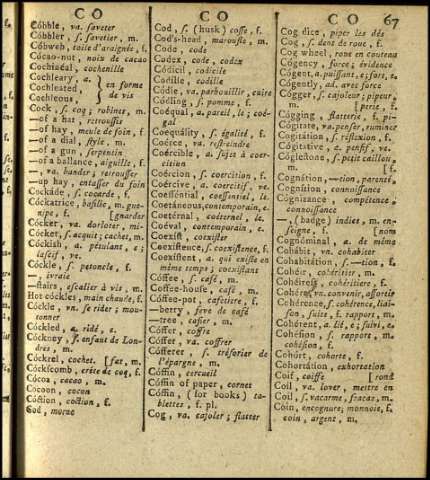 C O
C O
C O 67
Cóbble, va. saveter
Cóbbler, s. savetier, m.
Cóbweb, toile d'araignée, f.
Cócao-nut, noix de cacao
Cochiséal, cochenille
Cóchleary, a.
Cóchleated en forme
Cóchleous, de vis
Cock, s. coq; robinet, m.
—of a hat, retroussis
—of hay, meule de foin, f.
—of a dial, style, m.
—of a gun, serpentin
—of a ballance, aiguille, f.
—, va. bander; retrousser
—up hay, entasser du foin
Cockáde, s. cocarde, f.
Cóckatrice, basilic, m. gue-
nipe, f. [gnarder
Cócker, va. dorloter, mi-
Cócket, s. acquit; cachet, m.
Cóckish, a. pétulant, e;
lascif, ve.
Cóckle, s. petoncle, f.
—, ivraie
—stairs, escalier à vis, m.
Hot cóckles, main chaude, f.
Cóckle, vn. se rider; mou-
tonner
Cóckled, a. ridé, e.
Cóckney, s. enfant de Lon-
dres, m.
Cóckrel, cochet. [fat, m.
Cóckscomb, crête de coq, f.
Cócoa, cacao, m.
Cocoon, cocon
Cóction, coction, f.
Cod, morue
Cod, s. (husk) cosse, f.
Cód's-head, maroufle, m.
Code, code
Codex, code, codex
Códicil, codicile
Codille, codille
Códle, va. parbouillir, cuire
Códling, s. pomme, f.
Coéqual, a. pareil, le; coé-
gal
Coequálity, s. égalité, f.
Coérce, va. restreindre
Coércible, a. sujet à coer-
cition
Coércion, s. coercition, f.
Coércive, a. coercitif, ve.
Coesséntial, coessentiel, le
Coetáneous, contemporain, e.
Coetérnal, coéternel, le
Coéval, contemporain, e.
Coexíst, coexister
Coexístence, s. coexistence, f.
Coexístent, a. qui existe en
même temps; coexistant
Cóffee, s. café, m.
Cóffee-house, café, m.
Cóffee-pot, cafetiere, f.
—berry, feve de café
—tree, cafier, m.
Cóffer, coffre
Cóffer, va. coffrer
Cófferer, s. trésorier de
l'épargne, m.
Cóffin, cercueil
Cóffin of paper, cornet
Cóffin, (for books) ta-
blettes, f. pl.
Cog, va. cajoler; flatter
Cog dice, piper les dés
Cog, s. dent de roue, f.
Cog wheel, roue en couteau
Cógency, force; évidence
Cógent, a. puissant, e; fort, e.
Cógently, ad. avec force
Cógger, s. cajoleur; pipeur,
m. [perse, f.
Cógging, flatterie, f. pi-
Cógitate, va. penser, ruminer
Cogitátion, s. réflexion, f.
Cógitative, a. pensif, ve.
Cóglestone, s. petit caillou,
m. [f.
Cognátion,—tion, parenté,
Cognítion, connoissance
Cógnizance, compétence;
connoissance
—, (badge) indice, m. en-
seigne, f. [nom
Cognóminal, a. de même
Cohábit, vn. cohabiter
Cohabitátion, s.—tion, f.
Cohéir, cohéritier, m.
Cohéiress, cohéritiere, f.
Cohére, vn. convenir, assortir
Cohérence, s. cohérence, liai-
son, suite, f. rapport, m.
Cohérent, a. lié, e; suivi, e.
Cohésion, s. rapport, m.
cohésion, f.
Cohórt, cohorte, f.
Cohortátion, exhortation
Coif, coiffe [rond
Coil, va. lover, mettre en
Coil, s. vacarme, fracas, m.
Coin, encognure; monnoie, f.
coin, argent, m.